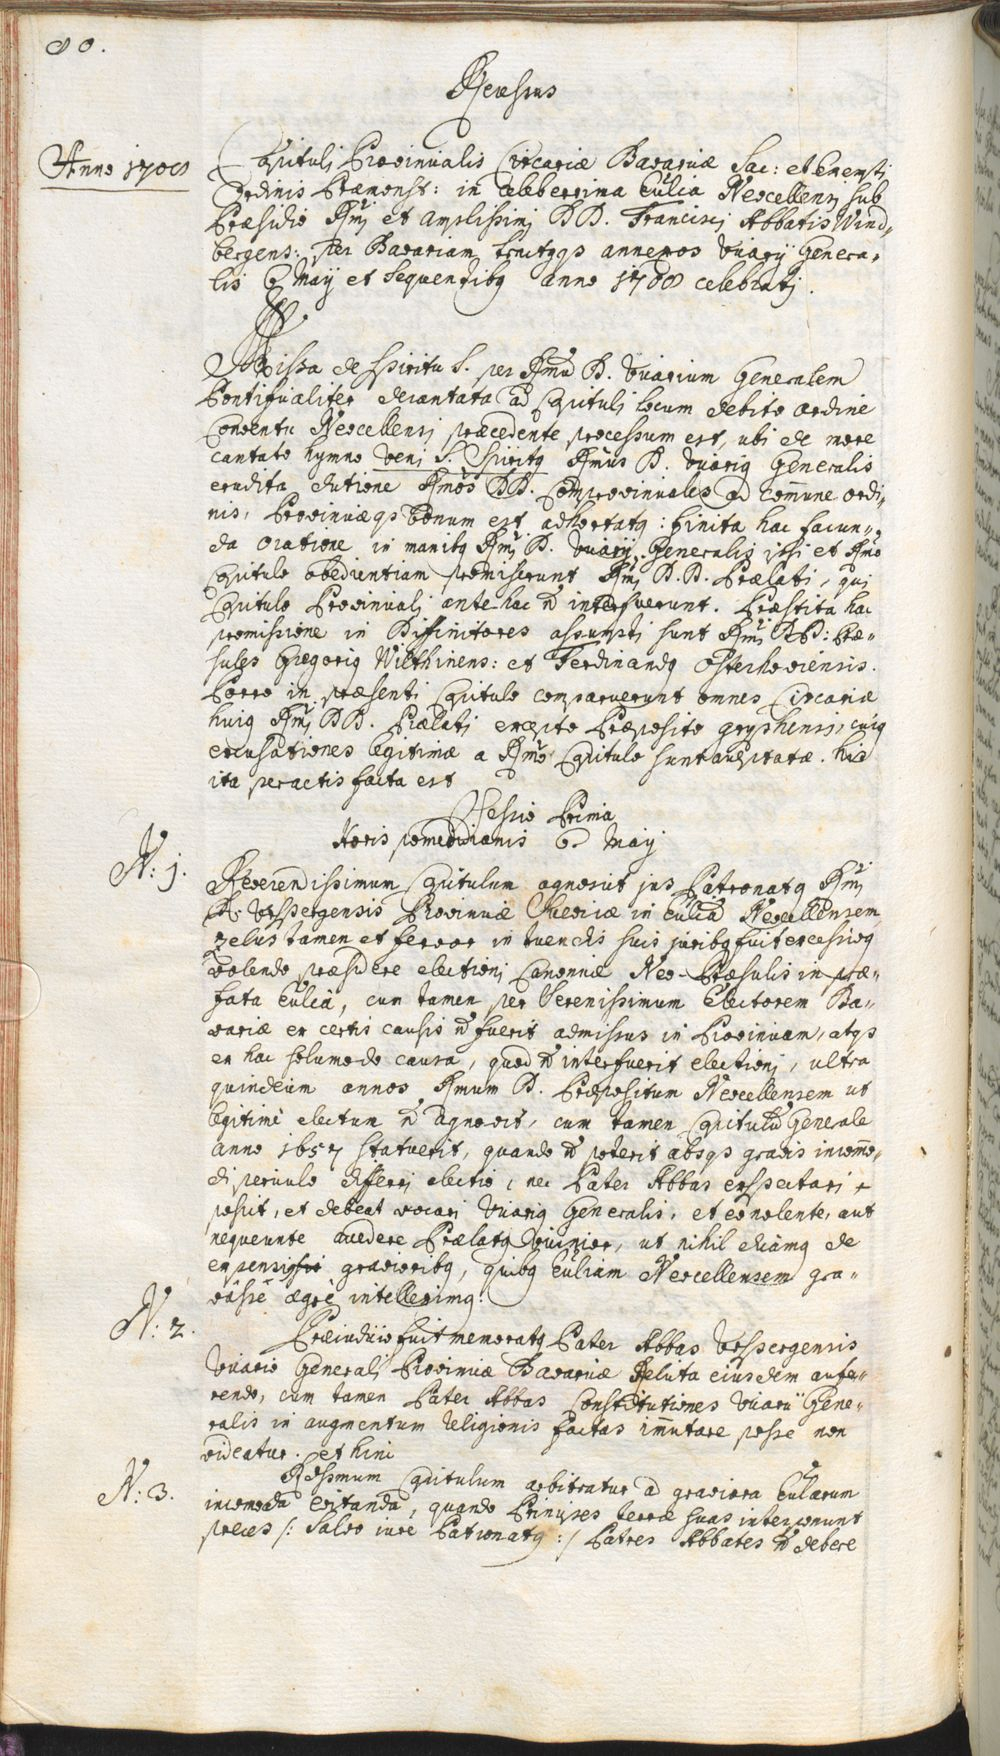 80.
Recessus
Anno 1708
Capituli Provincialis Circariæ Bavariæ Sac: et Exempti
Ordinis Præmonst: in celeberrima Ecclia Neocellensi sub
Præsidio Rmi et Amplissimi DD. Francisci Abbatis Wind-
bergens: per Bavariam tractusqs annexos Vicarij Genera-
lis 6 Maij et sequentibq anno 1708 celebrati.
Missa de Spiritu S. per Rmu D. Vicarium Generalem
Pontificaliter decantata ad Capituli locum debito ordine
Conventu Neocellensi præcedente processum est, ubi de more
cantato hymno Veni S. Spiritq Rmus D. Vicariq Generalis
erudita dictione Rmos DD. Comprovinciales ad commune ordi-
nis, Provinciæqs bonum est adhortatq: finita hac facun-
da oratione in manibq Rmi D. Vicarij Generalis ipsi et Rmo
Capitulo obedientiam promiserunt Rmi D.D. Prælati, qui
Capitulo Provinciali ante hac n interfuerunt. Præstita hac
promissione in Diffinitores assumpti sunt Rmi DD: Præ-
sules Gregoriq Wilthinens: et Ferdinandq Osterhoviensis.
Porro in præsenti Capitulo comparuerunt omnes Circariæ
huiq Rmi DD. Prælati excepto Præposito gryphensi, cuiq
excusationes legitimæ a Rmo Capitulo sunt acceptatæ. his
ita peractis facta est
Sessio Prima
Horis pomeridianis 6. Maij
N: 1.
Reverendissimum Capitulum agnoscit jus Patronatq Rmi
D. Urspergensis Provinciæ Sueviæ in Eccliã Neocellensem,
zelus tamen et fervor in tuendis suis juribq fuit excessivq
volendo præsidere electioni Canonicæ Neo-Præsulis in præ-
fata Ecclia, cum tamen per Serenissimum Electorem Ba-
variæ ex certis causis n fuerit admissus in Provinciam, atqs
ex hac solummodo causa, quod n interfuerit electioni, ultra
quindecim annos Rmum D. Præpositum Neocellensem ut
legitime electum n agnovit, cum tamen Capitulu Generale
anno 1657 statuerit, quando n poterit absqs gravis incommo-
di periculo differri electio, nec Pater Abbas exspectari
possit, et debeat vocari Vicariq Generalis, et eo nolente, aut
nequeunte accedere Prælatq vicinior, ut nihil dicamq de
expensis gravioribq, quibq Eccliam Neocellensem gra-
vasse ægre intelleximq.
N: 2.
Præiudicio fuit memoratq Pater Abbas Urspergensis
Vicario Generali Provinciæ Bavariæ Reluta eiusdem aufe-
rendo, cum tamen Pater Abbas Constitutiones Vicarii Gene-
ralis in augmentum religionis factas immutare posse non
videatur. et hinc
N: 3.
Rdssmum Capitulum arbitratur ad graviora Ecclarum
incomoda evitanda, quando Principes terræ suas interponunt
preces /: salvo iure Patronatq :/ Patres Abbates n debere